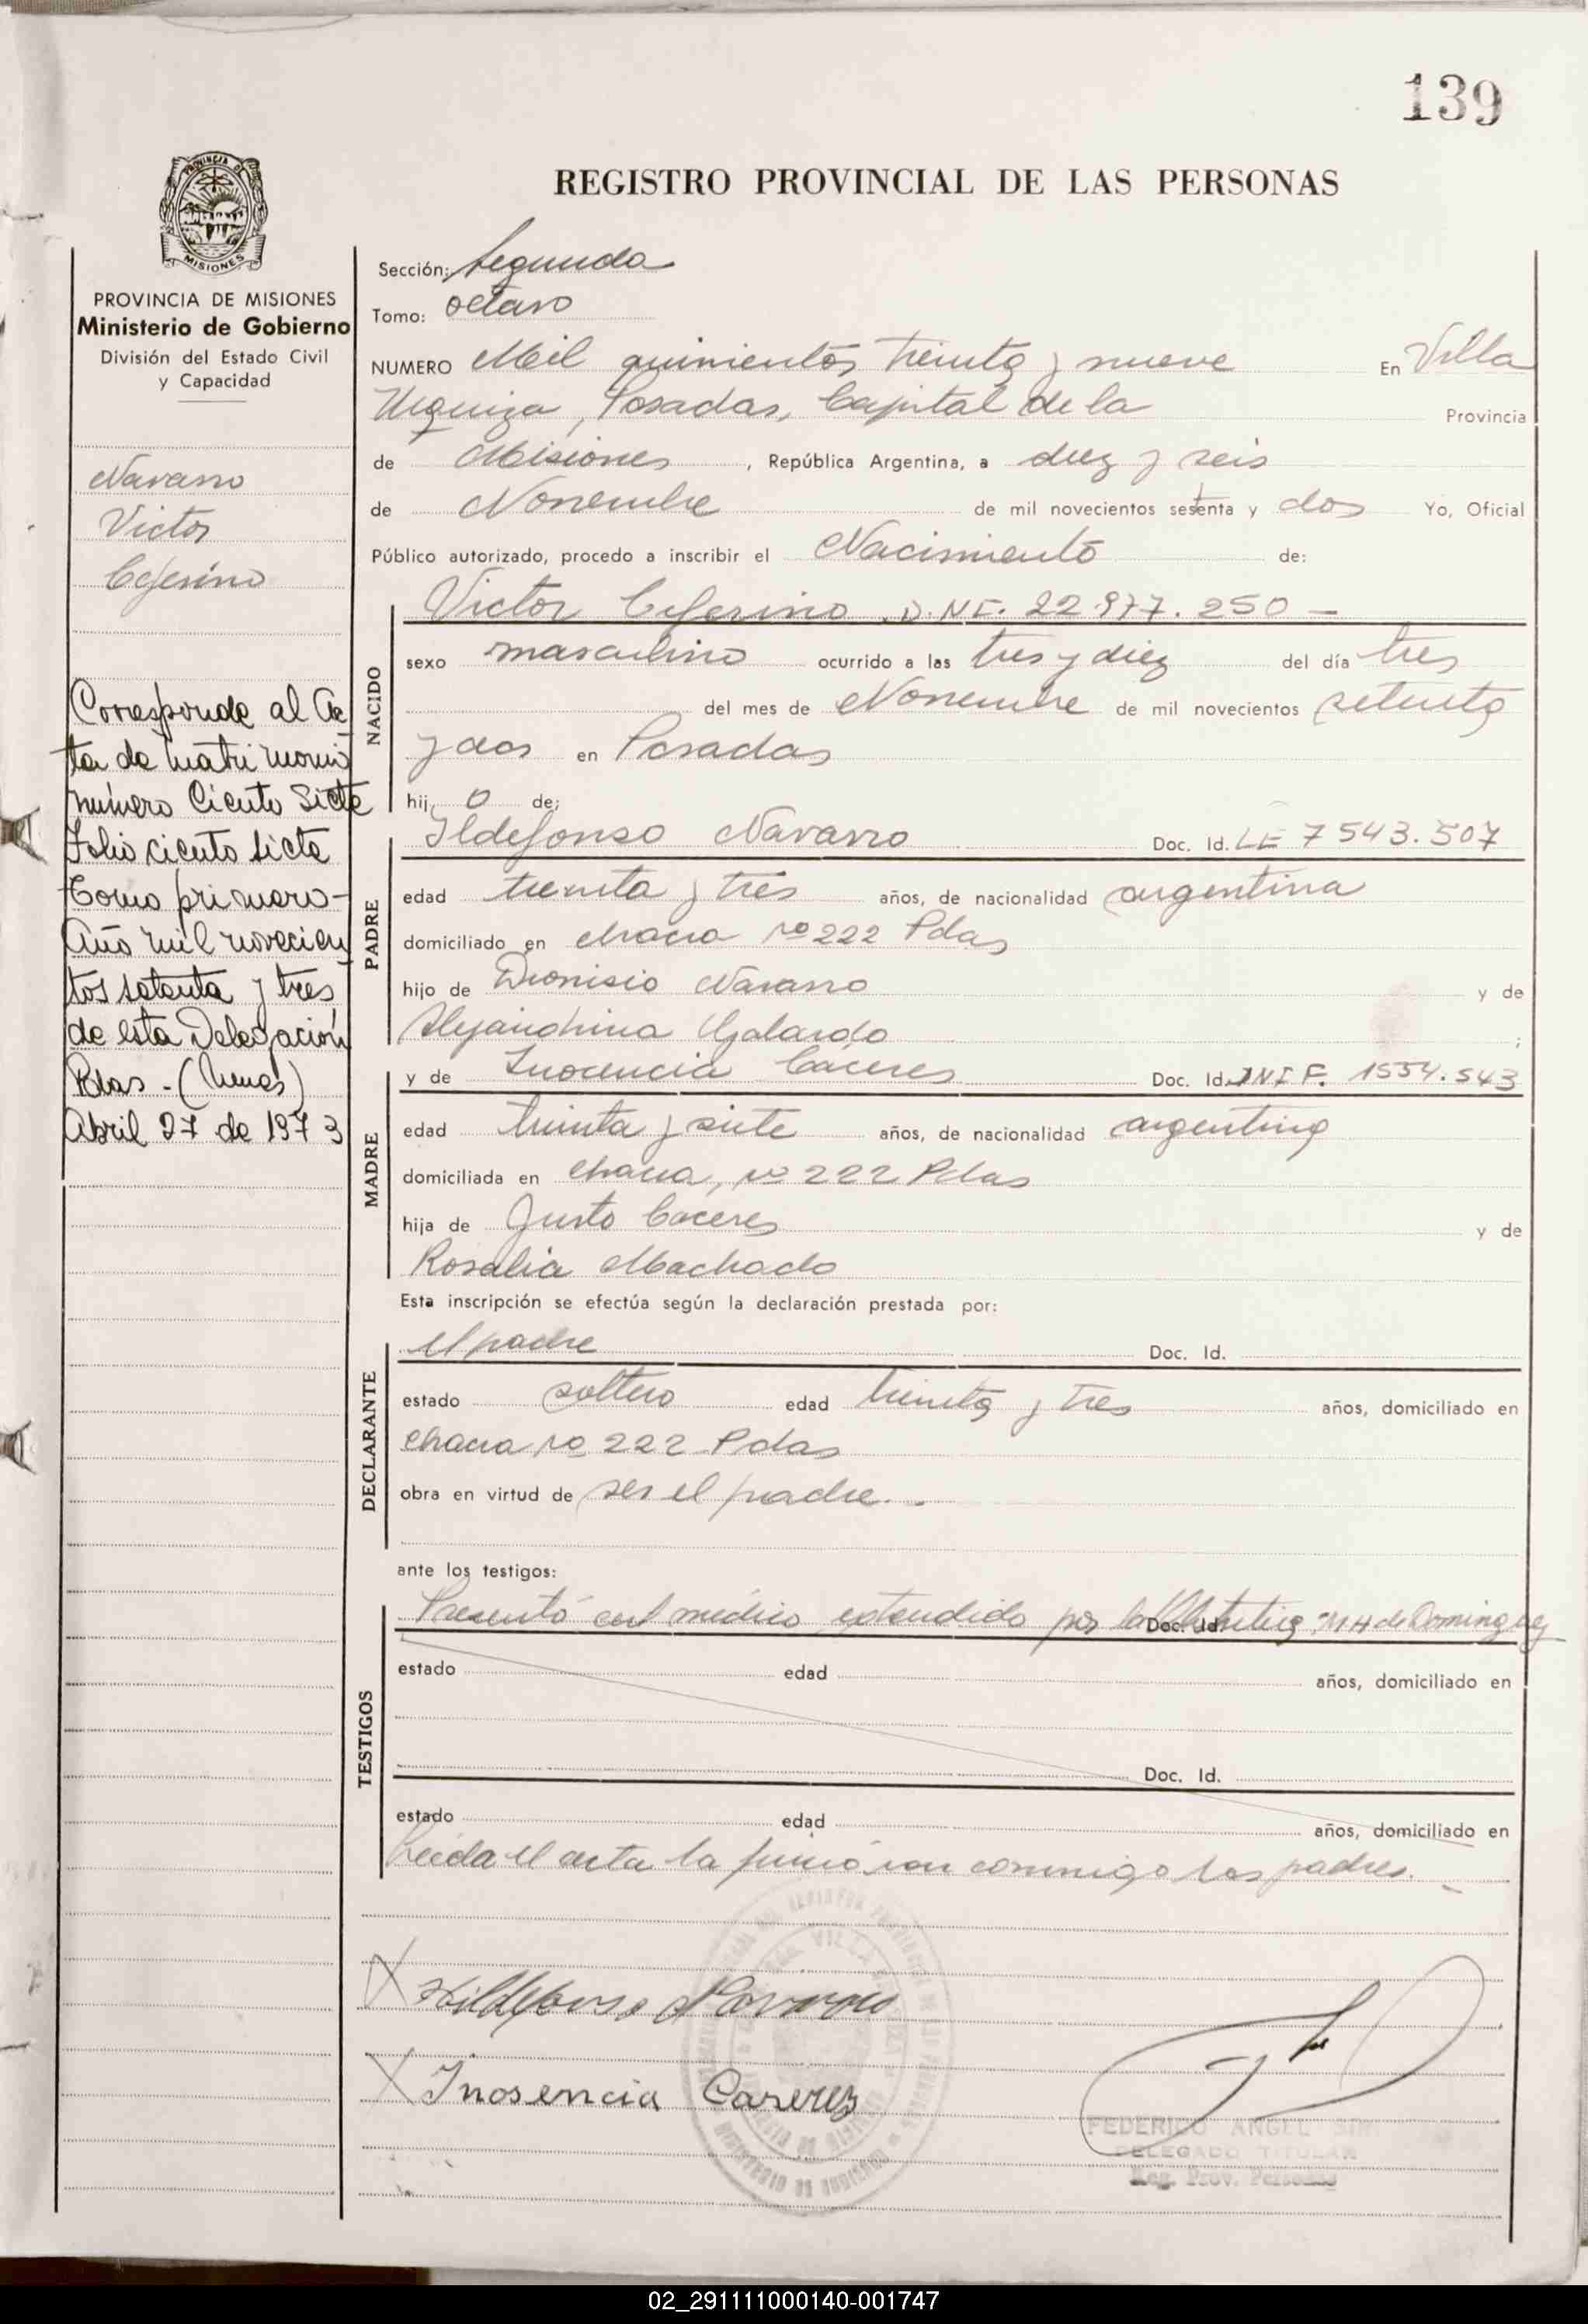 139
REGISTRO PROVINCIAL DE LAS PERSONAS
PROVINCIA DE MISIONES
Ministerio de Gobierno
División del Estado Civil
y Capacidad
Navarro
Victor
Ceferino
Corresponde al Ac
ta de matrimonio
número Ciento Siete
Folio ciento siete
Tomo primero-
Año mil novecien
tos setenta y tres
de esta Delegación
Pdas -
Abril 27 de 1973
Sección: Segunda
Tomo: octavo
NUMERO Mil quinientos treinta y nueve En Villa
Urquiza, Posadas, Capital de la Provincia
de Misiones, República Argentina, a diez y seis
de Noviembre de mil novecientos setenta y dos Yo, Oficial
Público autorizado, procedo a inscribir el Nacimiento de:
NACIDO
Victor Ceferino D.N.I. 22.977.250 -
sexo masculino ocurrido a las tres y diez del día tres
del mes de Noviembre de mil novecientos setenta
y dos en Posadas
hij o de:
PADRE
Ildefonso Navarro Doc. Id. LE 7543.507
edad treinta y tres años, de nacionalidad argentina
domiciliado en chacra no 222 Pdas
hijo de Dionisio Navarro y de
Alejandrina Galardo ;
MADRE
y de Inocencia Cáceres Doc. Id. DNI F. 1554.543
edad treinta y siete años, de nacionalidad argentina
domiciliada en chacra, no 222 Pdas
hija de Justo Caceres y de
Rosalia Machado
Esta inscripción se efectúa según la declaración prestada por:
DECLARANTE
el padre Doc. Id.
estado soltero edad treinta y tres años, domiciliado en
chacra no 222 Pdas
obra en virtud de ser el padre. -
ante los testigos:
TESTIGOS
Presentó cert médico extendido por la Doc. Id. MH de Dominguez
estado edad años, domiciliado en
Doc. Id.
estado edad años, domiciliado en
Leida el acta la conmigo los padres. -
X Hildefonso Navarro
X Inosencia Caserez
FEDERICO ANGEL
DELEGADO TITULAR
Reg. Prov. Personas
02_291111000140-001747